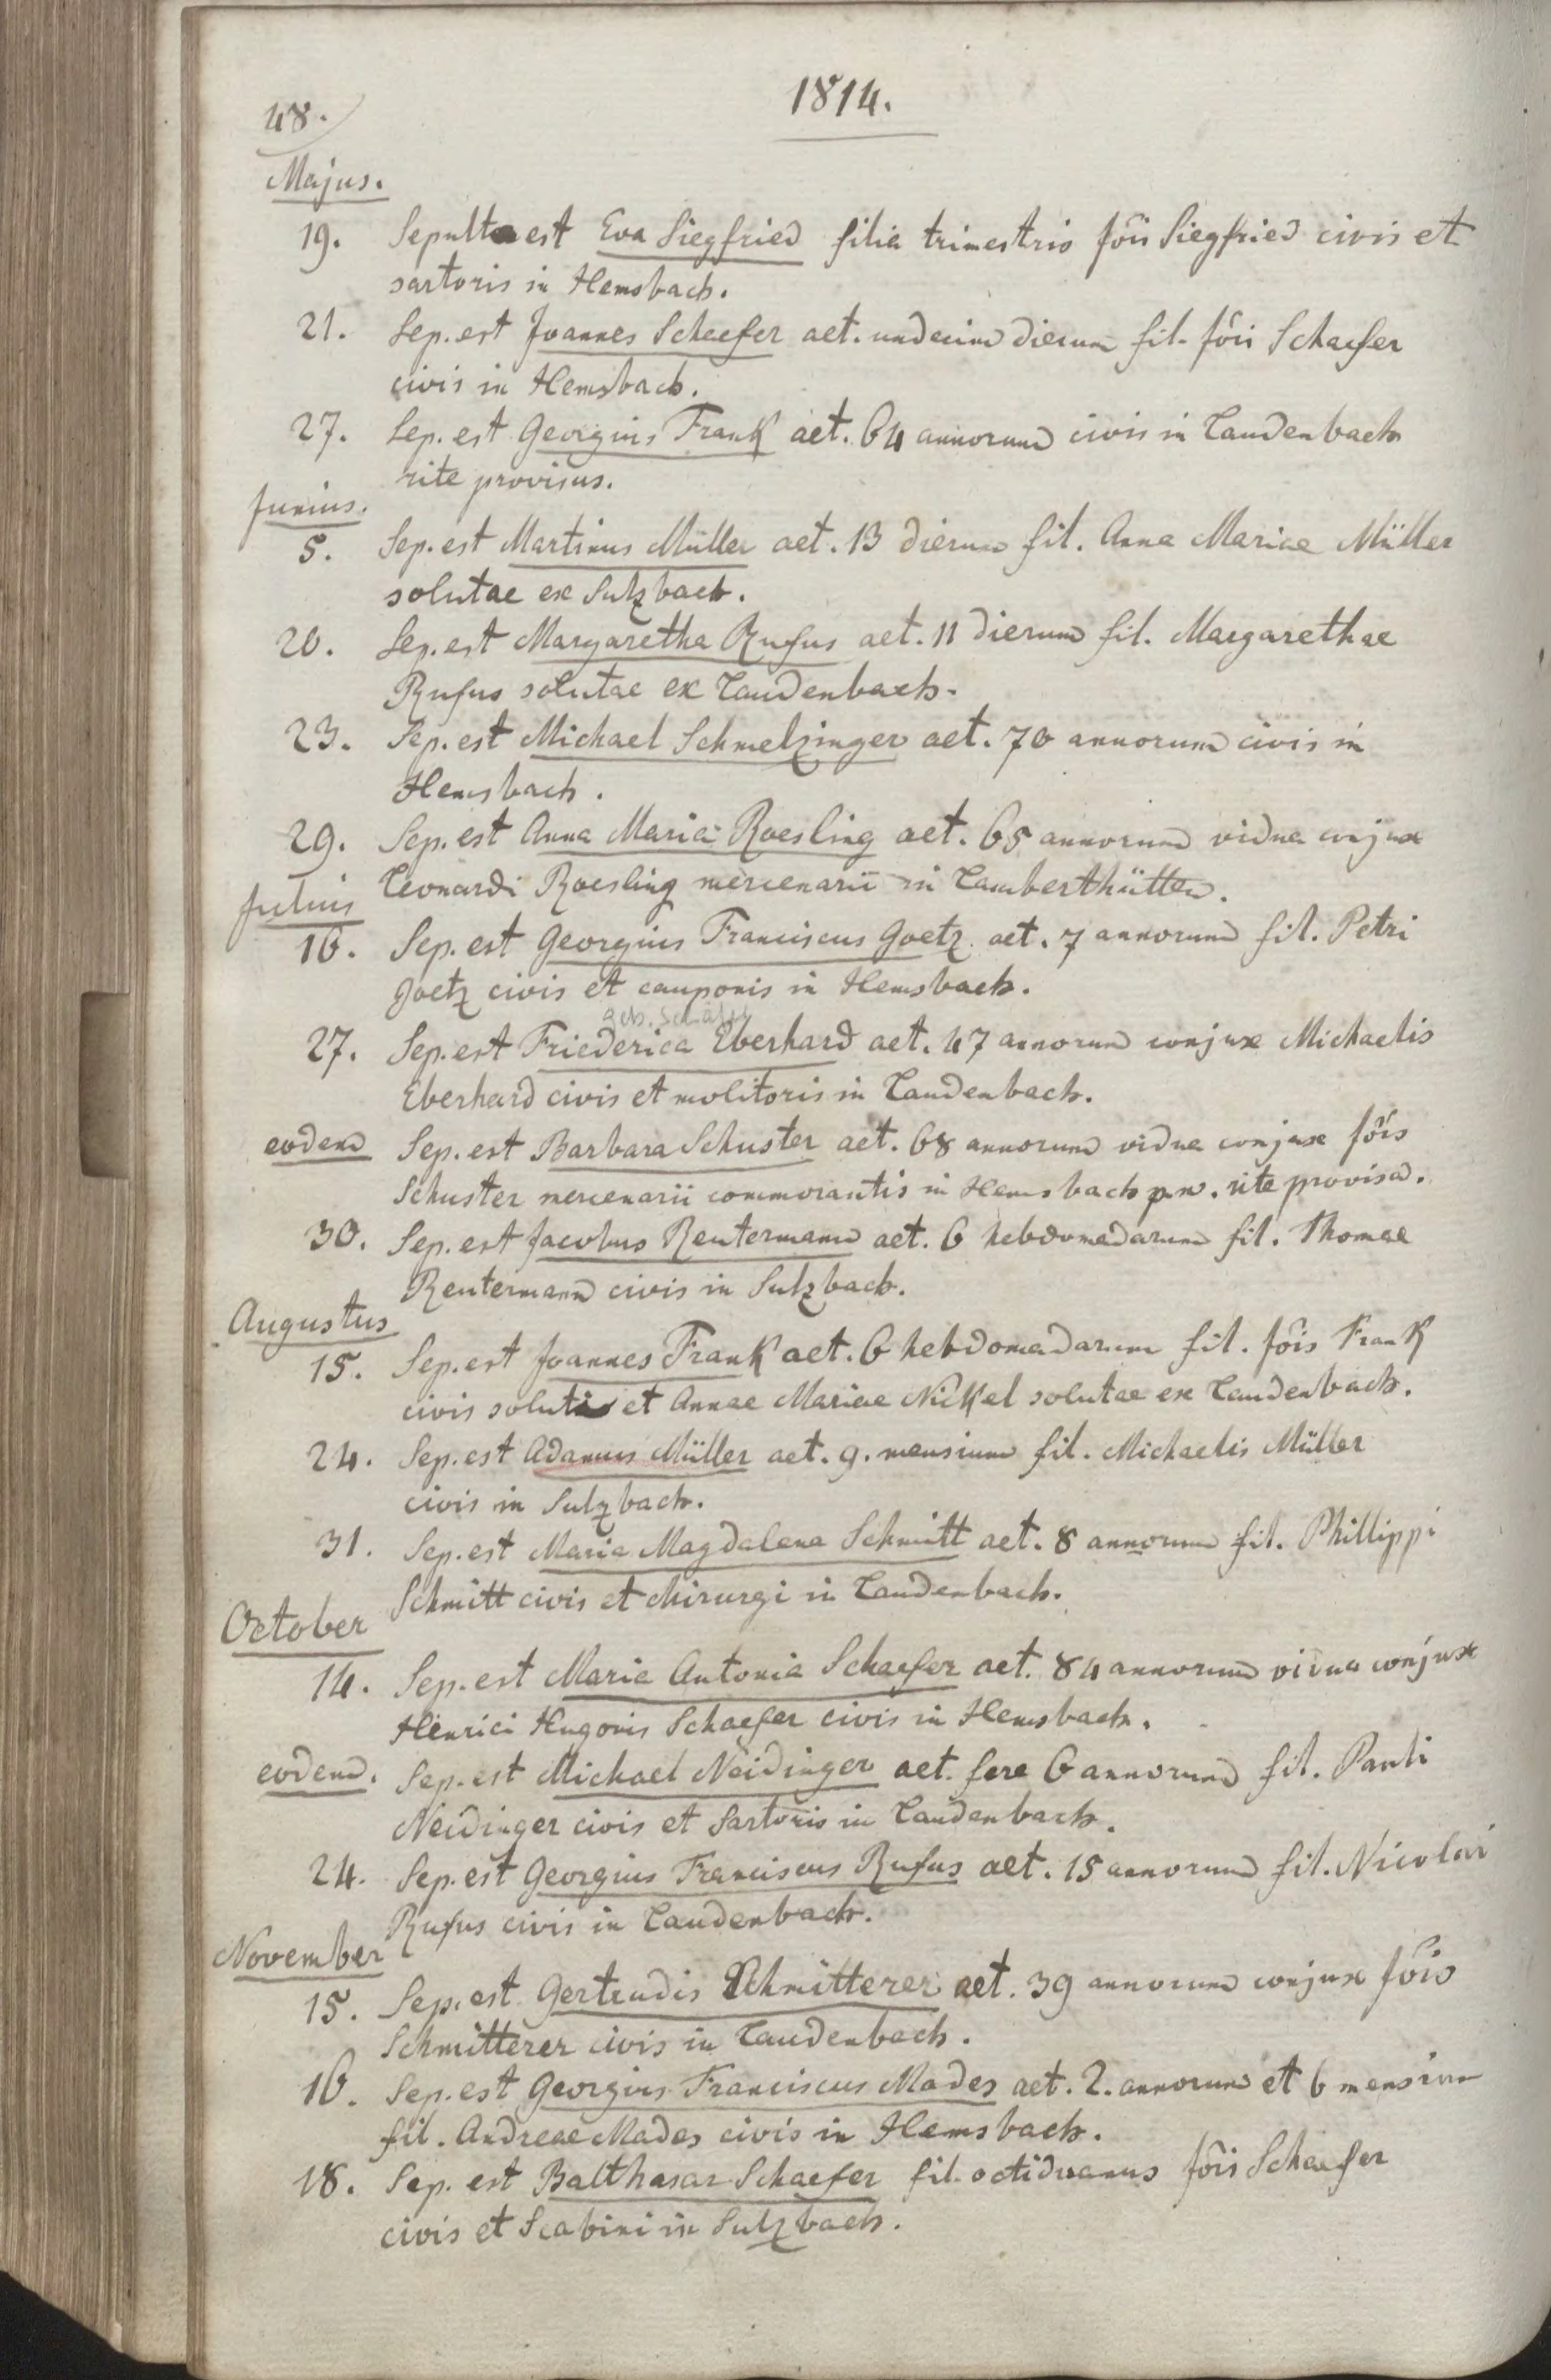 48.
1814.
Majus.
19. Sepulta est Eva Siegfried filia trimestris Jôis Siegfried civis et
sartoris in Hemsbach.
21. Sep. est Joannes Schaefer aet. undecim dierum fil. Jôis Schaefer
civis in Hemsbach.
27. Sep. est Georgius Frank aet. 64 annorum civis in Laudenbach
rite provisus.
Junius.
5. Sep. est Martinus Müller aet. 13 dierum fil. Anna Mariae Müller
solutae ex Sulzbach.
20. Sep. est Margaretha Rufus aet. 11 dierum fil. Margarethae
Rufus solutae ex Laudenbach.
23. Sep. est Michael Schmelzinger aet. 70 annorum civis in
Hemsbach.
29. Sep. est Anna Maria Roesling aet. 65 annorum vidua conjux
Leonardi Roesling mercenarii in Lamberthütten.
Julius
16. Sep. est Georgius Franciscus Goetz aet. 7 annorum fil. Petri
Goetz civis et cauponis in Hemsbach.
geb. Schäfer
27. Sep. est Friederica Eberhard aet. 47 annorum conjux Michaelis
Eberhard civis et molitoris in Laudenbach.
eodem Sep. est Barbara Schuster aet. 68 annorum vidua conjux Jôis
Schuster mercenarii commorantis in Hemsbach p.n. rite provisa.
30. Sep. est Jacobus Reutermann aet. 6 hebdomadarum fil. Thomae
Reutermann civis in Sulzbach.
Augustus
15. Sep. est Joannes Frank aet. 6 hebdomadarum fil. Jôis Frank
civis soluti et Annae Mariae Nickel solutae ex Laudenbach.
24. Sep. est Adamus Müller aet. 9. mensium fil. Michaelis Müller
civis in Sulzbach.
31. Sep. est Maria Magdalena Schmitt aet. 8 annorum fil. Phillippi
Schmitt civis et chirurgi in Laudenbach.
October
14. Sep. est Maria Antonia Schaefer aet. 84 annorum vidua conjux
Henrici Hugonis Schaefer civis in Hemsbach.
eodem. Sep. est Michael Neidinger aet. fere 6 annorum fil. Pauli
Neidinger civis et Sartoris in Laudenbach.
24. Sep. est Georgius Franciscus Rufus aet. 15 annorum fil. Nicolai
Rufus civis in Laudenbach.
November
15. Sep. est Gertrudis Schmitterer aet. 39 annorum conjux Jôis
Schmitterer civis in Laudenbach.
16. Sep. est Georgius Franciscus Mades aet. 2. annorum et 6 mensium
fil. Andreae Mades civis in Hemsbach.
18. Sep. est Balthasar Schaefer fil. octiduanus Jôis Schaefer
civis et Scabini in Sulzbach.